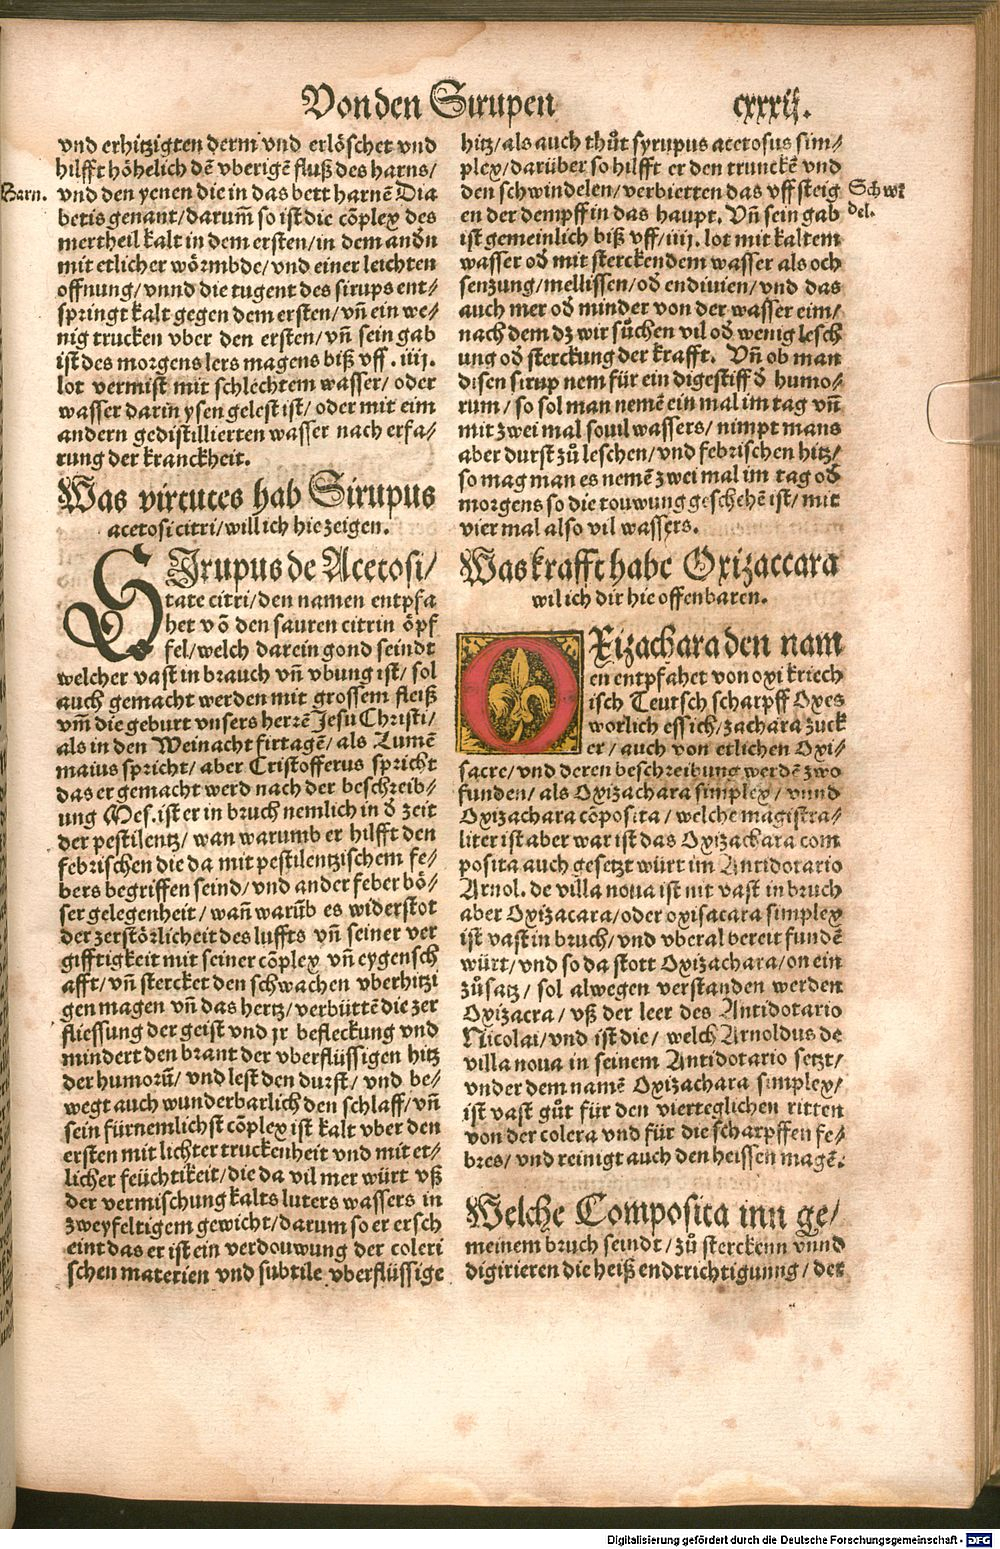 Von den Sirupen
cxxxij.
vnd erhitzigten derm vnd erlöschet vnd
hilfft höhelich dē vberigē fluß des harns/
Harn.
vnd den yenen die in das bett harnē Dia
betis genant/darum̄ so ist die cōplex des
mertheil kalt in dem ersten/in dem andn̄
mit etlicher wörmbde/vnd einer leichten
offnung/vnnd die tugent des sirups ent⸗
springt kalt gegen dem ersten/vn̄ ein we⸗
nig trucken vber den ersten/vn̄ sein gab
ist des morgens lers magens biß vff .iiij.
lot vermist mit schlechtem wasser/oder
wasser darin̄ ysen gelest ist/oder mit eim
andern gedistillierten wasser nach erfa⸗
rung der kranckheit.
Was virtutes hab Sirupus
acetosi citri/will ich hie zeigen.
SIrupus de Acetosi/
tate citri/den namen entpfa
het vō den sauren citrin öpf
fel/welch darein gond seindt
welcher vast in brauch vn̄ vbung ist/sol
auch gemacht werden mit grossem fleiß
vm̄ die geburt vnsers herzē Jesu Christi/
als in den Weinacht firtagē/als Lumē
maius spricht/aber Cristofferus spricht
das er gemacht werd nach der beschreib⸗
ung Mes. ist er in bruch nemlich in d̄ zeit
der pestilentz/wan warumb er hilfft den
febrischen die da mit pestilentzischem fe⸗
bers begriffen seind/vnd ander feber bö⸗
ser gelegenheit/wan̄ warūb es widerstot
der zerstörlicheit des luffts vn̄ seiner ver
gifftigkeit mit seiner cōplex vn̄ eygensch
afft/vn̄ stercket den schwachen vberhitzi
gen magen vn̄ das hertz/verbüttē die zer
fliessung der geist vnd jr befleckung vnd
mindert den brant der vberflüssigen hitz
der humorū/vnd lest den durst/vnd be⸗
wegt auch wunderbarlich den schlaff/vn̄
sein fürnemlichst cōplex ist kalt vber den
ersten mit lichter truckenheit vnd mit et⸗
licher feüchtikeit/die da vil mer würt vß
der vermischung kalts luters wassers in
zweyfeltigem gewicht/darum so er ersch
eint das er ist ein verdouwung der coleri
schen materien vnd subtile vberflüssige
hitz/als auch thůt syrupus acetosus sim⸗
plex/darüber so hilfft er den trunckē vnd
den schwindelen/verbietten das vff steig
Schwi
del.
en der dempff in das haupt. Vn̄ sein gab
ist gemeinlich biß vff/iiij. lot mit kaltem
wasser od̄ mit sterckendem wasser als och
senzung/mellissen/od̄ endiuien/vnd das
auch mer od̄ minder von der wasser eim/
nach dem dz wir sůchen vil od̄ wenig lesch
ung od̄ sterckung der krafft. Vn̄ ob man
disen sirup nem für ein digestiff d̄ humo⸗
rum/so sol man nemē ein mal im tag vn̄
mit zwei mal souil wassers/nimpt mans
aber durst zů leschen/vnd febrischen hitz/
so mag man es nemē zwei mal im tag od̄
morgens so die touwung geschehē ist/mit
vier mal also vil wassers.
Was krafft habe Oxizaccara
wil ich dir hie offenbaren.
OXizachara den nam
en entpfahet von oxi kriech
isch Teutsch scharpff Oxes
worlich essich/zachara zuck
er/auch von etlichen Oxi⸗
sacre/vnd deren beschreibung werdē zwo
funden/als Oxizachara simplex/vnnd
Oxizachara cōposita/welche magistra⸗
liter ist aber war ist das Oxizachara com
posita auch gesetzt würt im Antidotario
Arnol. de villa noua ist nit vast in bruch
aber Oxizacara/oder oxisacara simplex
ist vast in bruch/vnd vberal bereit fundē
würt/vnd so da stott Oxizachara/on ein
zůsatz/sol alwegen verstanden werden
Oxizacra/vß der leer des Antidotario
Nicolai/vnd ist die/welch Arnoldus de
villa noua in seinem Antidotario setzt/
vnder dem namē Oxizachara simplex/
ist vast gůt für den vierteglichen ritten
von der colera vnd für die scharpffen fe⸗
bres/vnd reinigt auch den heissen magē.
Welche Composita inn ge/
meinem bruch seindt/zů sterckenn vnnd
digirieren die heiß endtrichtigunng/der
Digitalisierung gefördert durch die Deutsche Forschungsgemeinschaft - DFG